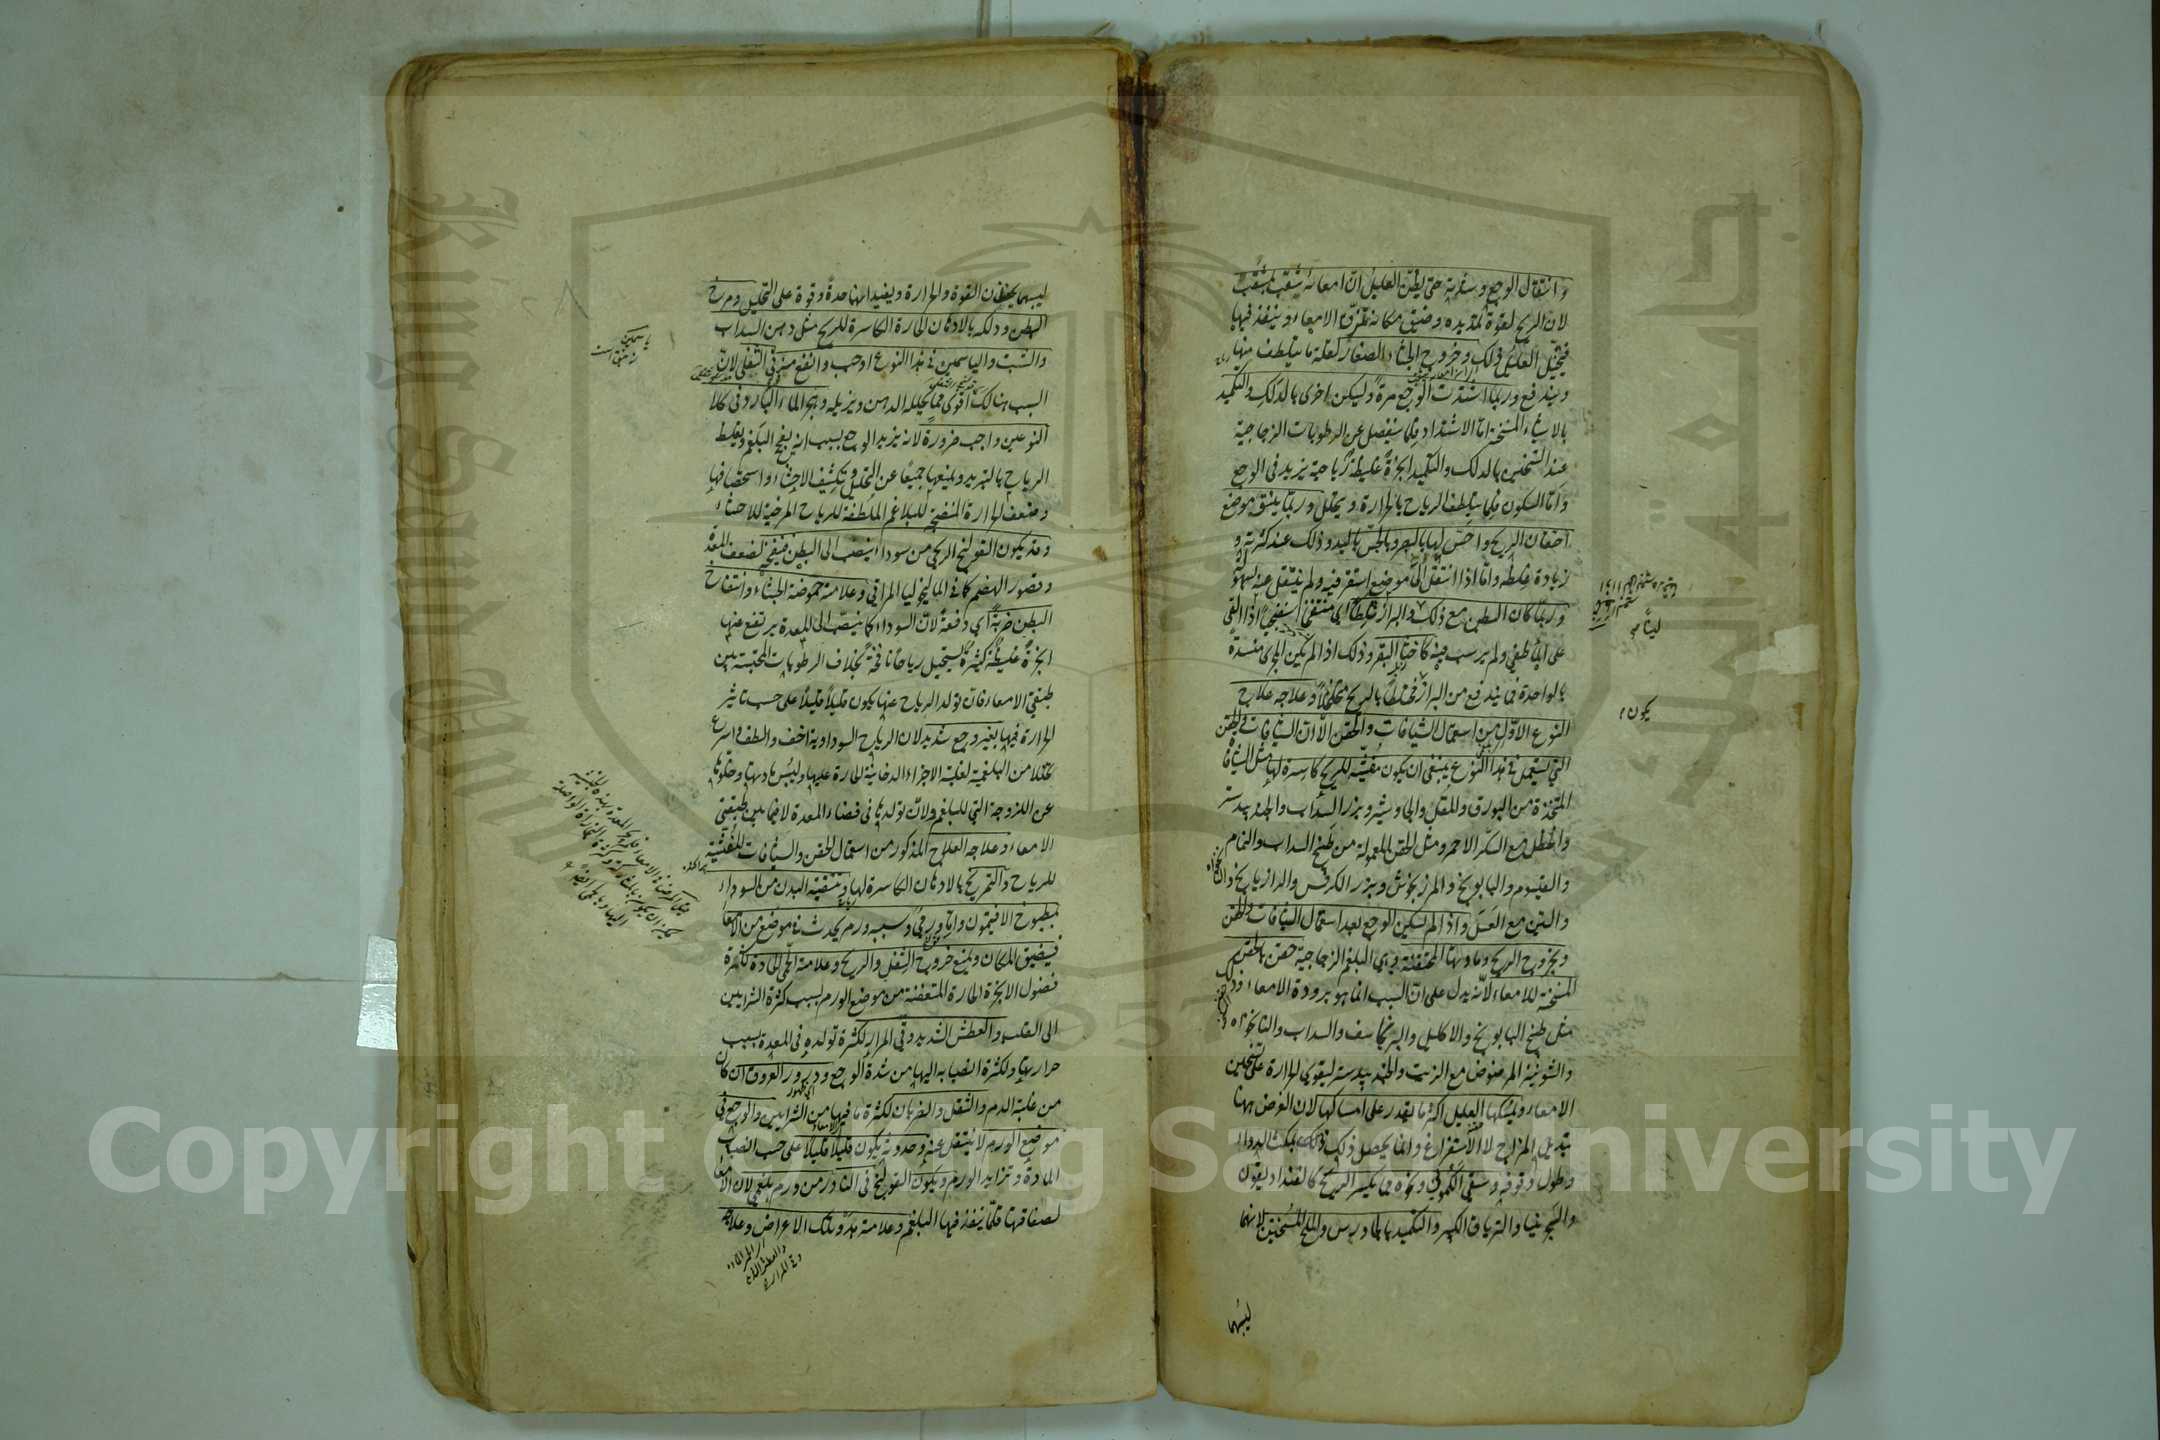 وانتقال الوجع وسفرية حتى يظن العليل ان امعائه يثقب بمثقب
لان الريح لقوة تمديده وضيق مكانه تمزق الامعاء وينفذ فيها
فيتخيل العليل ذلك وخروج الجشاء الصغار لقلة ما يتلطف منها
ويندفع وربما اشتدت الوجع مرة وليكن اخرى بالدلك والتكميد
بالاشياء المسخنة اما الاشتداد فلما ينفصل عن الرطوبات الزجاجية
عند التسخين بالدلك والتكميد ابخرة غليظة رياحية يزيد في الوجع
واما السكون فلما يتلطف الرياح بالحرارة ويتحلل وربما ينتق موضع
احتقان الريح واحس لها بالبصر وبالجس باليد وذلك عند كثرته و
زيادة غلظه واما اذا انتقل الى موضع استقر فيه ولم ينتقل عنه لسهولة
وربما كان البطن مع ذلك والبراز اي منتفخا اسفنجيا اذا القي
على الماء طفي ولم يرسب فيه كاخثاء البقر وذلك اذا لم يكن المجرى منسدة
بالواحدة فما يندفع من البراز مختلطا بالريح متخلخلا وعلاجه علاج
النوع الاول من استعمال الشيافات والحقن الا ان الشيافات والحقن
التي تستعمل في هذا النوع ينبغي ان يكون مفشية للريح كاسرة لها مثل الشيافات
المتخذة من البورق والمقل والجاوشير وبزر السداب والجندبيدستر
والحنظل مع السكر الاحمر ومثل الحقن المعمولة من طبيخ السداب والنمام
والقيسوم والبابونج والمرزنجوش وبزر الكرفس والرازيانج
والتين مع العسل واذا لم يسكن الوجع بعد استعمال الشيافات والحقن
وبخروج الريح ومادتها المحتقنة وهي البلغم الزجاجية حقن بالحقن
المسخنة للامعاء لانه يدل على ان السبب انما هو برودة الامعاء وذلك
مثل طبيخ البابونج والاكليل والبرنجاسف والسداب والنانخواه
والشونيز المرضوض مع الزيت والجندبيدستر ليقوي الحرارة على تسخين
الامعاء ويمسكها العليل اكثر ما يقدر على امساكها لان الغرض ههنا
تبديل المزاج لا الاستفراغ وانما يحصل ذلك بمكث الدواء
وطول وقوفه وسقي الكموني ونحوه مما يكسر الريح كالفنداديقون
والسجزينيا والترياق الكبير والتكميد بالجاورس والملح المسخنين لانهما
ليبسهما
يكون
ليبسهما يحفظان القوة والحرارة ويفيد انها حدة وقوة على التحليل ومرخ
البطن ودلكه بالادهان الحارة الكاسرة للريح مثل دهن السداب
والشبت والياسمين في هذا النوع اوجب وانفع منه في الثفلي لان
السبب هنالك اقوى مما يحلله الدهن ويزيله وهجر الماء البارد في كلا
النوعين واجب ضرورة لانه يزيد الوجع بسبب انه يفج البلغم ويغلظ
الرياح بالتبريد ويمنعها جميعا عن التحليل وتكثيف الاحشاء واستحصافها
وضعف الحرارة المنضجة للبلاغم الملطفة للرياح المرخية للاحشاء
وقد يكون القولنج الريحي من سوداء ينصب الى البطن فينفخه لضعف المعدة
وقصور الهضم كما في الماليخوليا المراقي وعلامته حموضة الجشاء وانتفاخ
البطن ضربة اي دفعة لان السوداء كما ينصب الى المعدة يرتفع عنها
ابخرة غليظة كثيرة تستحيل رياحا نافخة بخلاف الرطوبات المحتبسة بين
طبقتي الامعاء فان تولد الرياح عنها يكون قليلا قليلا على حسب تاثير
الحرارة فيها بغير وجع شديد لان الرياح السوداوية اخف والطف واسرع
تحللا من البلغمية لغلبة الاجزاء الدخانية الحارة عليها وليبس مادتها وخلوها
عن اللزوجة التي للبلغم ولان تولدها في فضاء المعدة لا فيما بين طبقتي
الامعاء وعلاجه العلاج المذكور من استعمال الحقن والشيافات المفشية
للرياح والتمريخ بالادهان الكاسرة لها وتنقية البدن من السوداء
بمطبوخ الافتيمون واما ورمي وسببه ورم يحدث في موضع من الامعاء
فيضيق المكان ويمنع خروج الثفل والريح وعلامته الحمى الحادة لكثرة
فضول الابخرة الحارة المتعفنة من موضع الورم بسبب كثرة الشرايين
الى القلب والعطش الشديد وقي المرار لكثرة تولده في المعدة بسبب
حرارتها ولكثرة انصبابه اليها من شدة الوجع ودرور العروق ان كان
من غلبة الدم والثقل والضربان لكثرة ما فيها من الشرايين والوجع في
موضع الورم لا ينتقل عنه وحدوثه يكون قليلا قليلا على حسب انصباب
المادة وتزايد الورم ويكون القولنج في النادر من ورم بلغمي لان الامعاء
لصفاقتها قلما ينفذ فيها البلغم وعلامته تلك الاعراض وعلاجه
Copyright © King Saud University